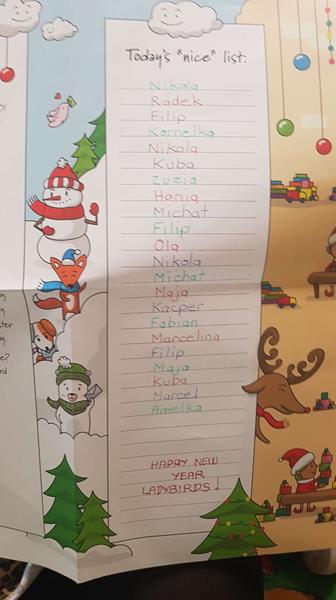 Today's "nice" list:
Nikola
Radek
Filip
Kornelka
Nikola
Kuba
Zuzia
Hania
Michał
Filip
Ola
Nikola
Michał
Maja
Kacper
Fabian
Marcelina
Filip
Maja
Kuba
Marcel
Amelka
HAPPY NEW
YEAR
LADYBIRDS!